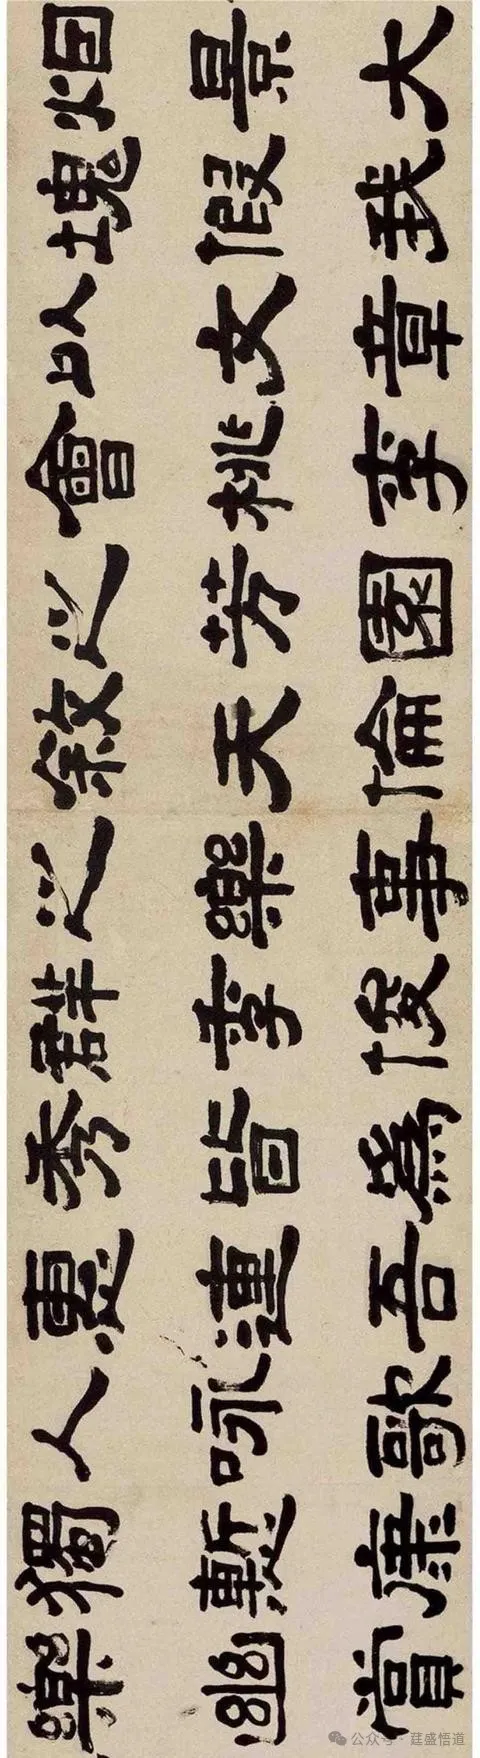 烟景大
塊假我
以文章
會桃李
之芳園
敘天倫
之樂事
群季俊
秀皆為
惠連吾
人咏歌
獨慙康
樂幽賞
公众号·莛盛悟道